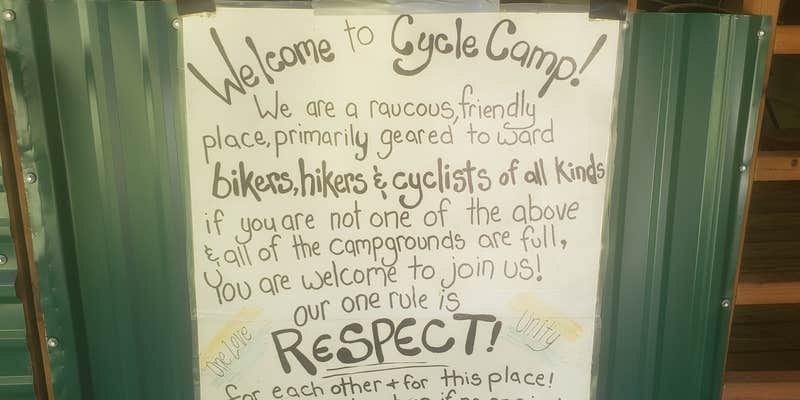 Welcome to Cycle Camp!
We are a raucous, friendly
place, primarily geared to ward
bikers, hikers & cyclists of all kinds
if you are not one of the above
& all of the campgrounds are full,
You are welcome to join us!
our one rule is
One Love
RESPECT!
Unity
for each other + for this place!